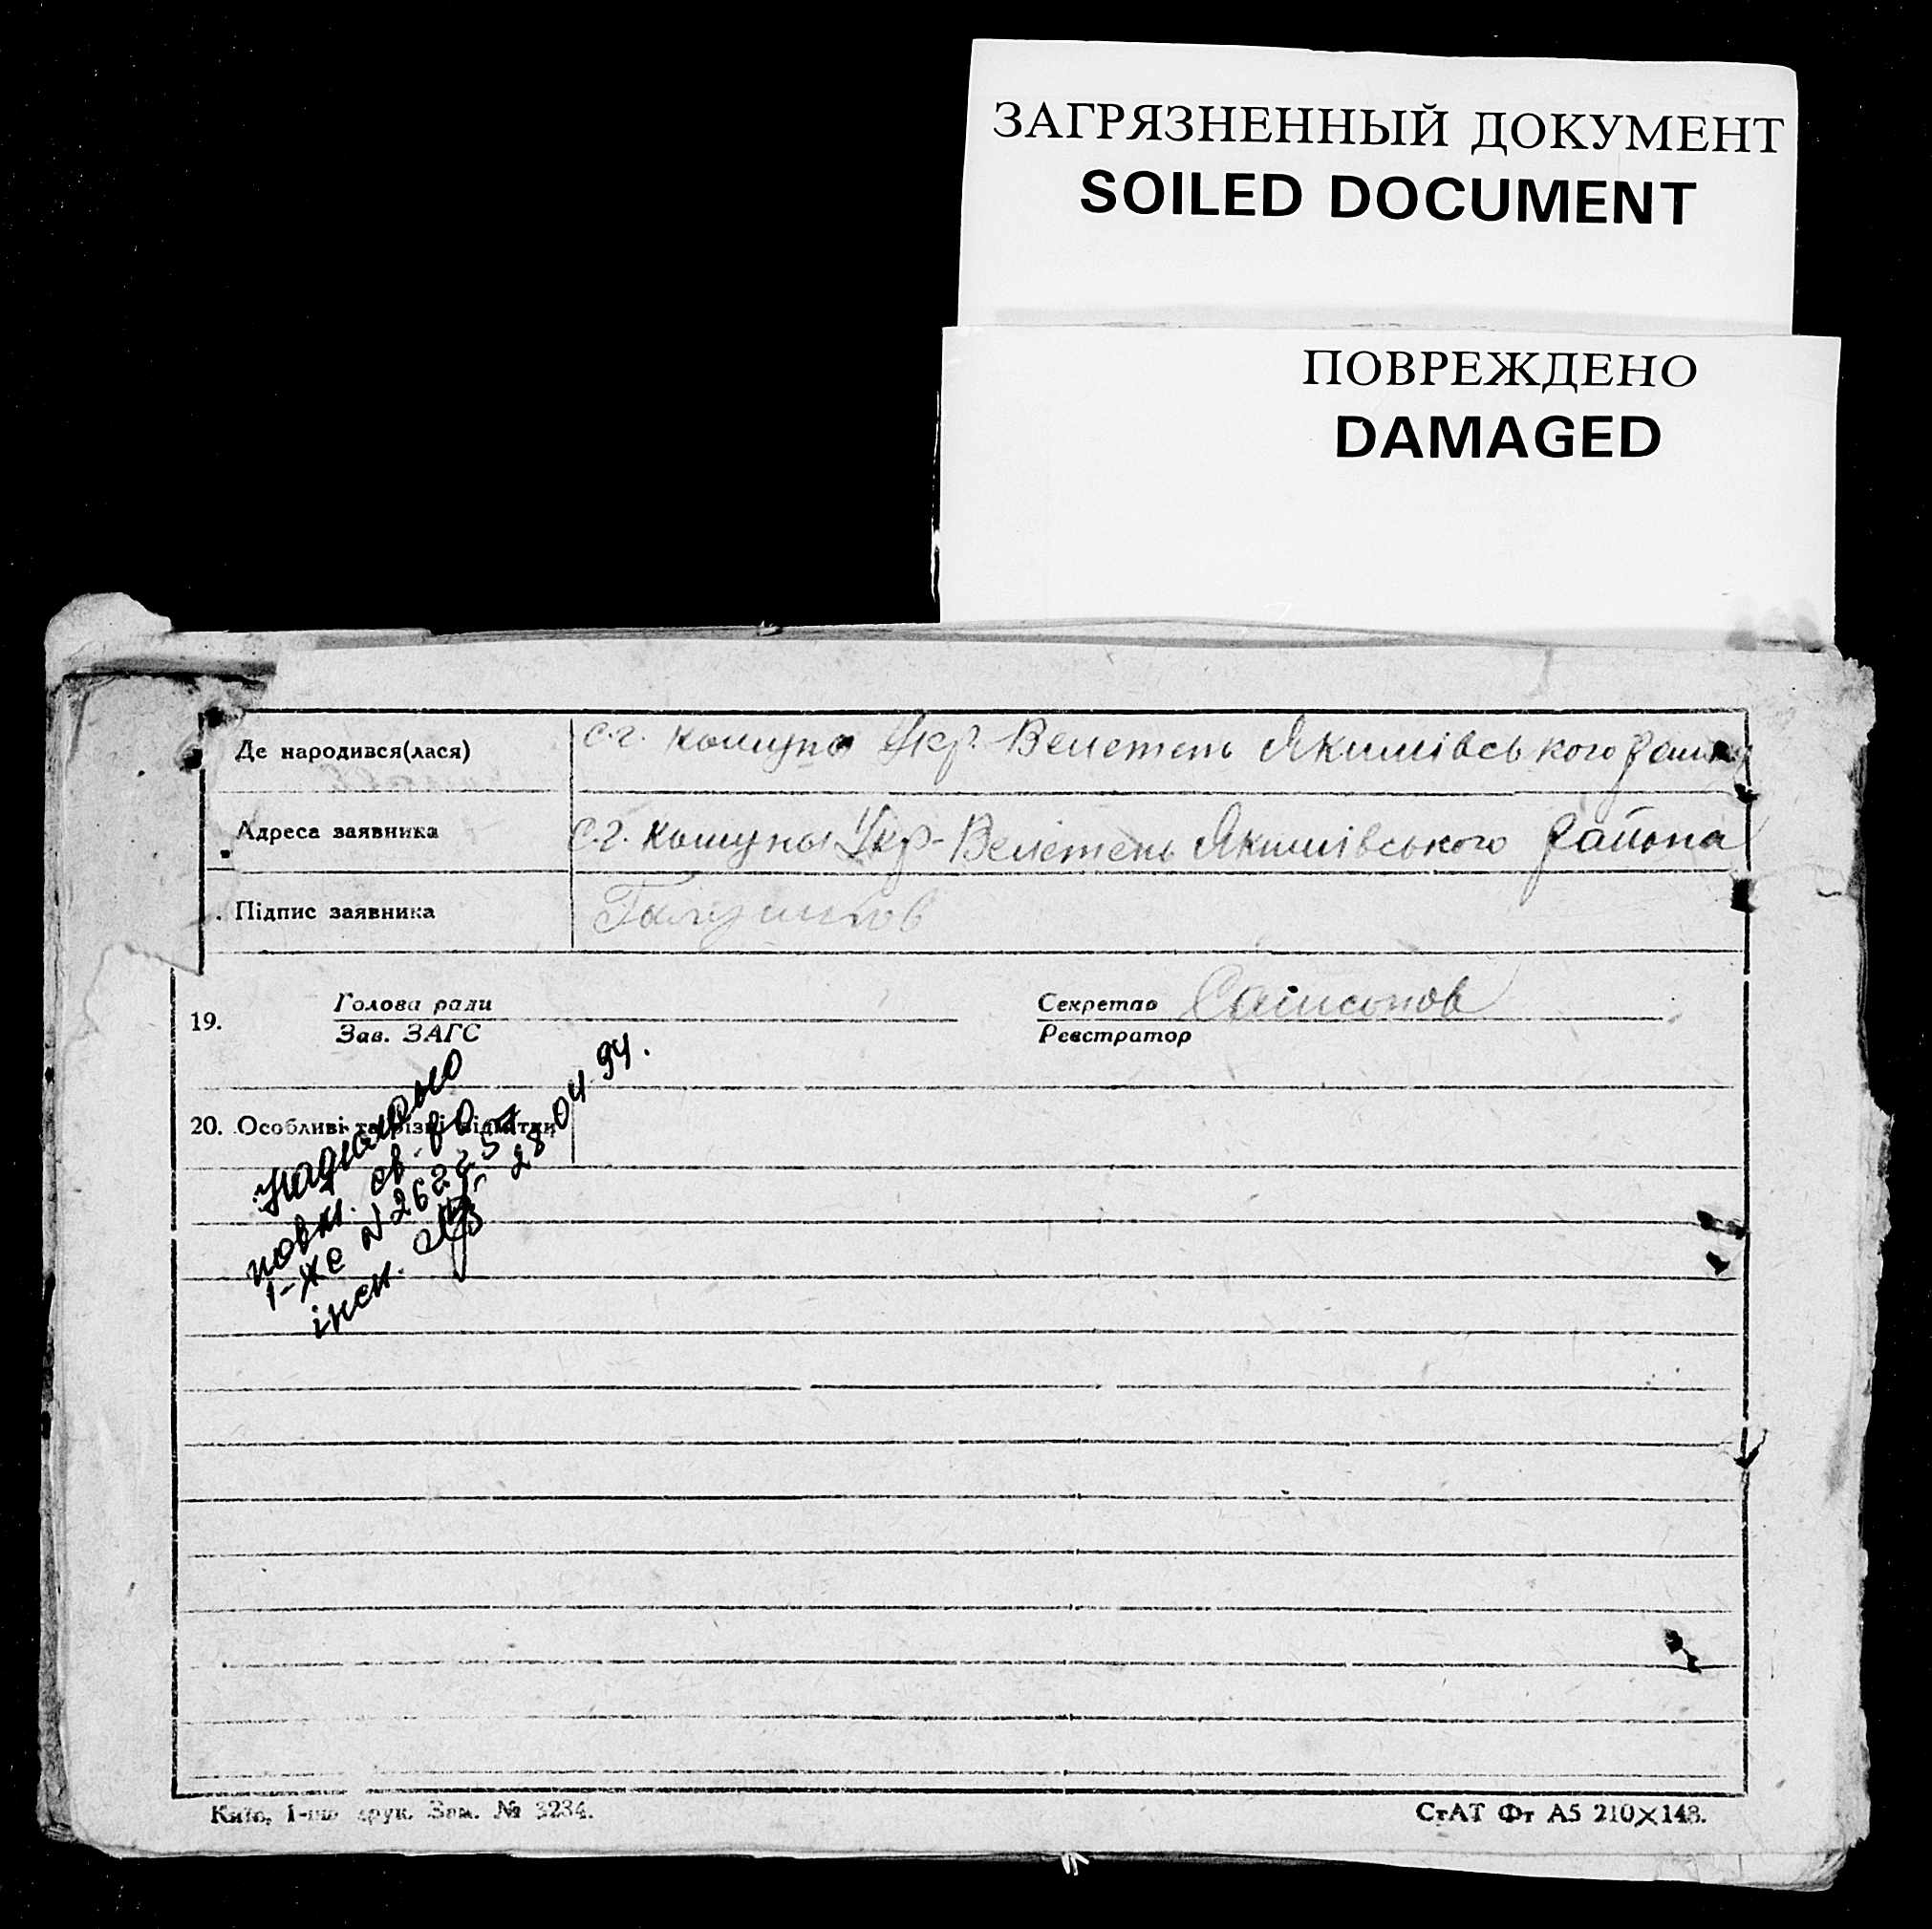 ЗАГРЯЗНЕННЫЙ ДОКУМЕНТ
SOILED DOCUMENT
ПОВРЕЖДЕНО
DAMAGED
Де народився(лася) с.г. комуна Укр. Велетень Якимівського району
Адреса заявника с.г. комуна Укр-Велетень Якимівського района
Підпис заявника
19. Голова ради Секретар Самсонов
Зав. ЗАГС Реєстратор
20. Особливі та різні відмітки
повт. св-во
1-ЖС N 262257
28.04.94.
інсп.
Київ, 1-ша друк. Зам. № 3234.
СтАТ Фт А5 210×148.